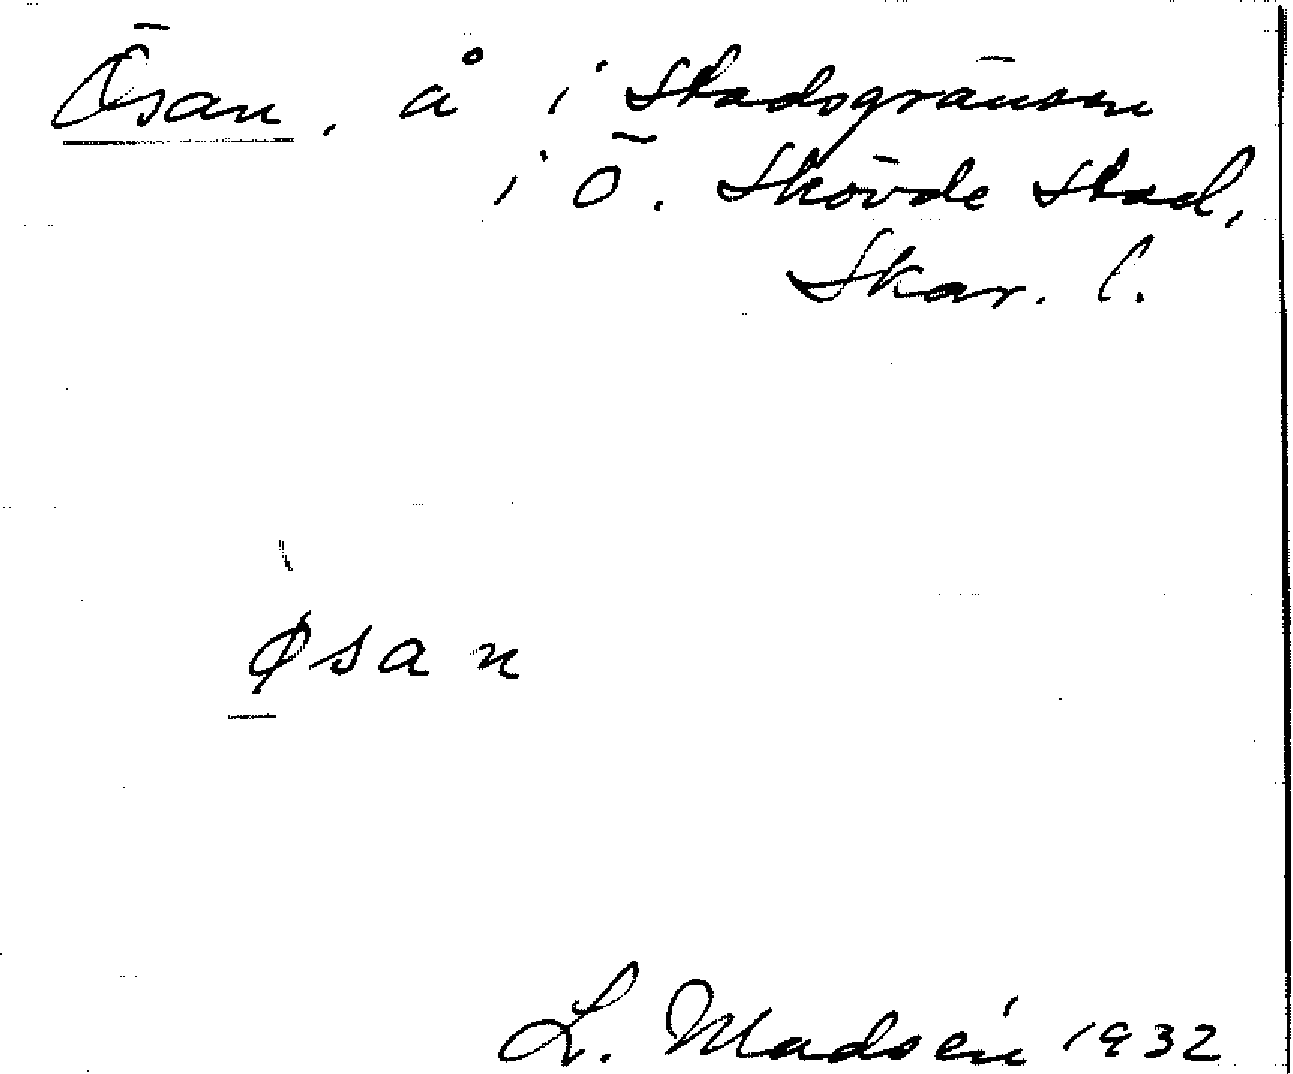 Ösan, å i Stadsgränsen
i Ö. Skövde stad,
Skar. l.
Øsan
L. Madsén 1932